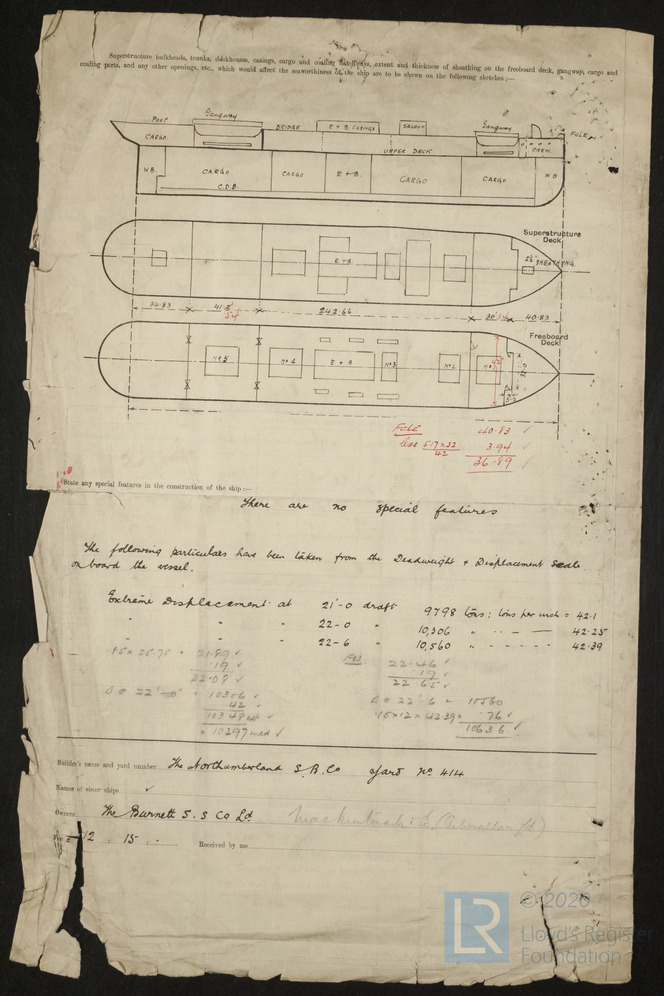 Superstructure bulkheads, trunks, deckhouses, casings, cargo and coaling hatchways, extent and thickness of sheathing on the freeboard deck, gangway, cargo and
coaling ports, and any other openings, etc., which would affect the seaworthiness of the ship are to be shown on the following sketches :—
POOP Gangway BRIDGE E + B CASINGS SALOON Gangway FCLE
CARGO. CREW.
UPPER DECK
W.B. CARGO CARGO E + B. CARGO CARGO W.B
C.D.B.
Superstructure
Deck.
E + B 2½" SHEATHING.
34.83 41.5 242.66 30 40.83
54
Freeboard
Deck.
Nº 5 Nº 4 E + B Nº 3 Nº 2 Nº 1
FCLE 40.83 ✓
less 5.17 × 32 3.94 ✓
42
36.89 ✓
State any special features in the construction of the ship :—
There are no special features
The following particulars have been taken from the Deadweight + Displacement Scale
on board the vessel.
Extreme Displacement at 21'-0 draft 9798 tons: tons per inch = 42.1
" " 22-0 " 10,306 " .. — — 42.25
" " 22-6 " 10,560 " - - - - - 42.39
21.89 ✓ 22.46 ✓
.19 ✓ .19 ✓
22.08 ✓ 22.65 ✓
Δ @ 22'-0" = 10306 ✓ Δ @ 22'-6 = 10560
42 ✓ .15×12×42.39 = 76 ✓
10348 10636 ✓
= 10297 med ✓
Builder's name and yard number The Northumberland S.B. Co Yard Nº 414
Names of sister ships ✓
Owners The Burnett S.S Co Ld
Fee £ 12 . 15 . - Received by me
LR
© 2020
Lloyd's Register
Foundation